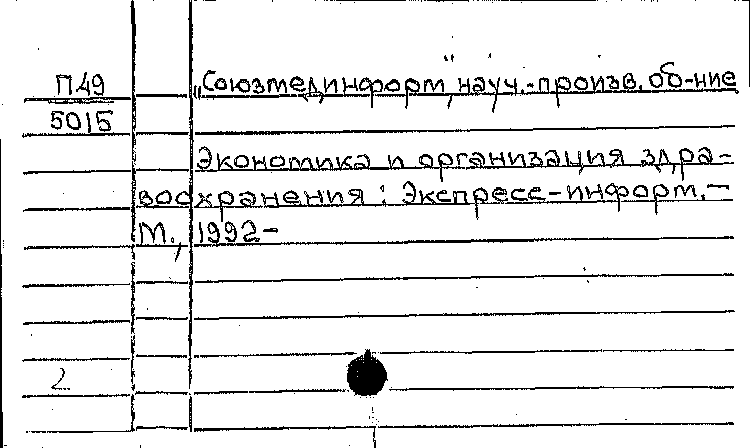 П49
5015
„Союзмединформ", науч.-произв. об-ние
Экономика и организация здра-
воохранения : Экспресс-информ.–
М., 1992-
2